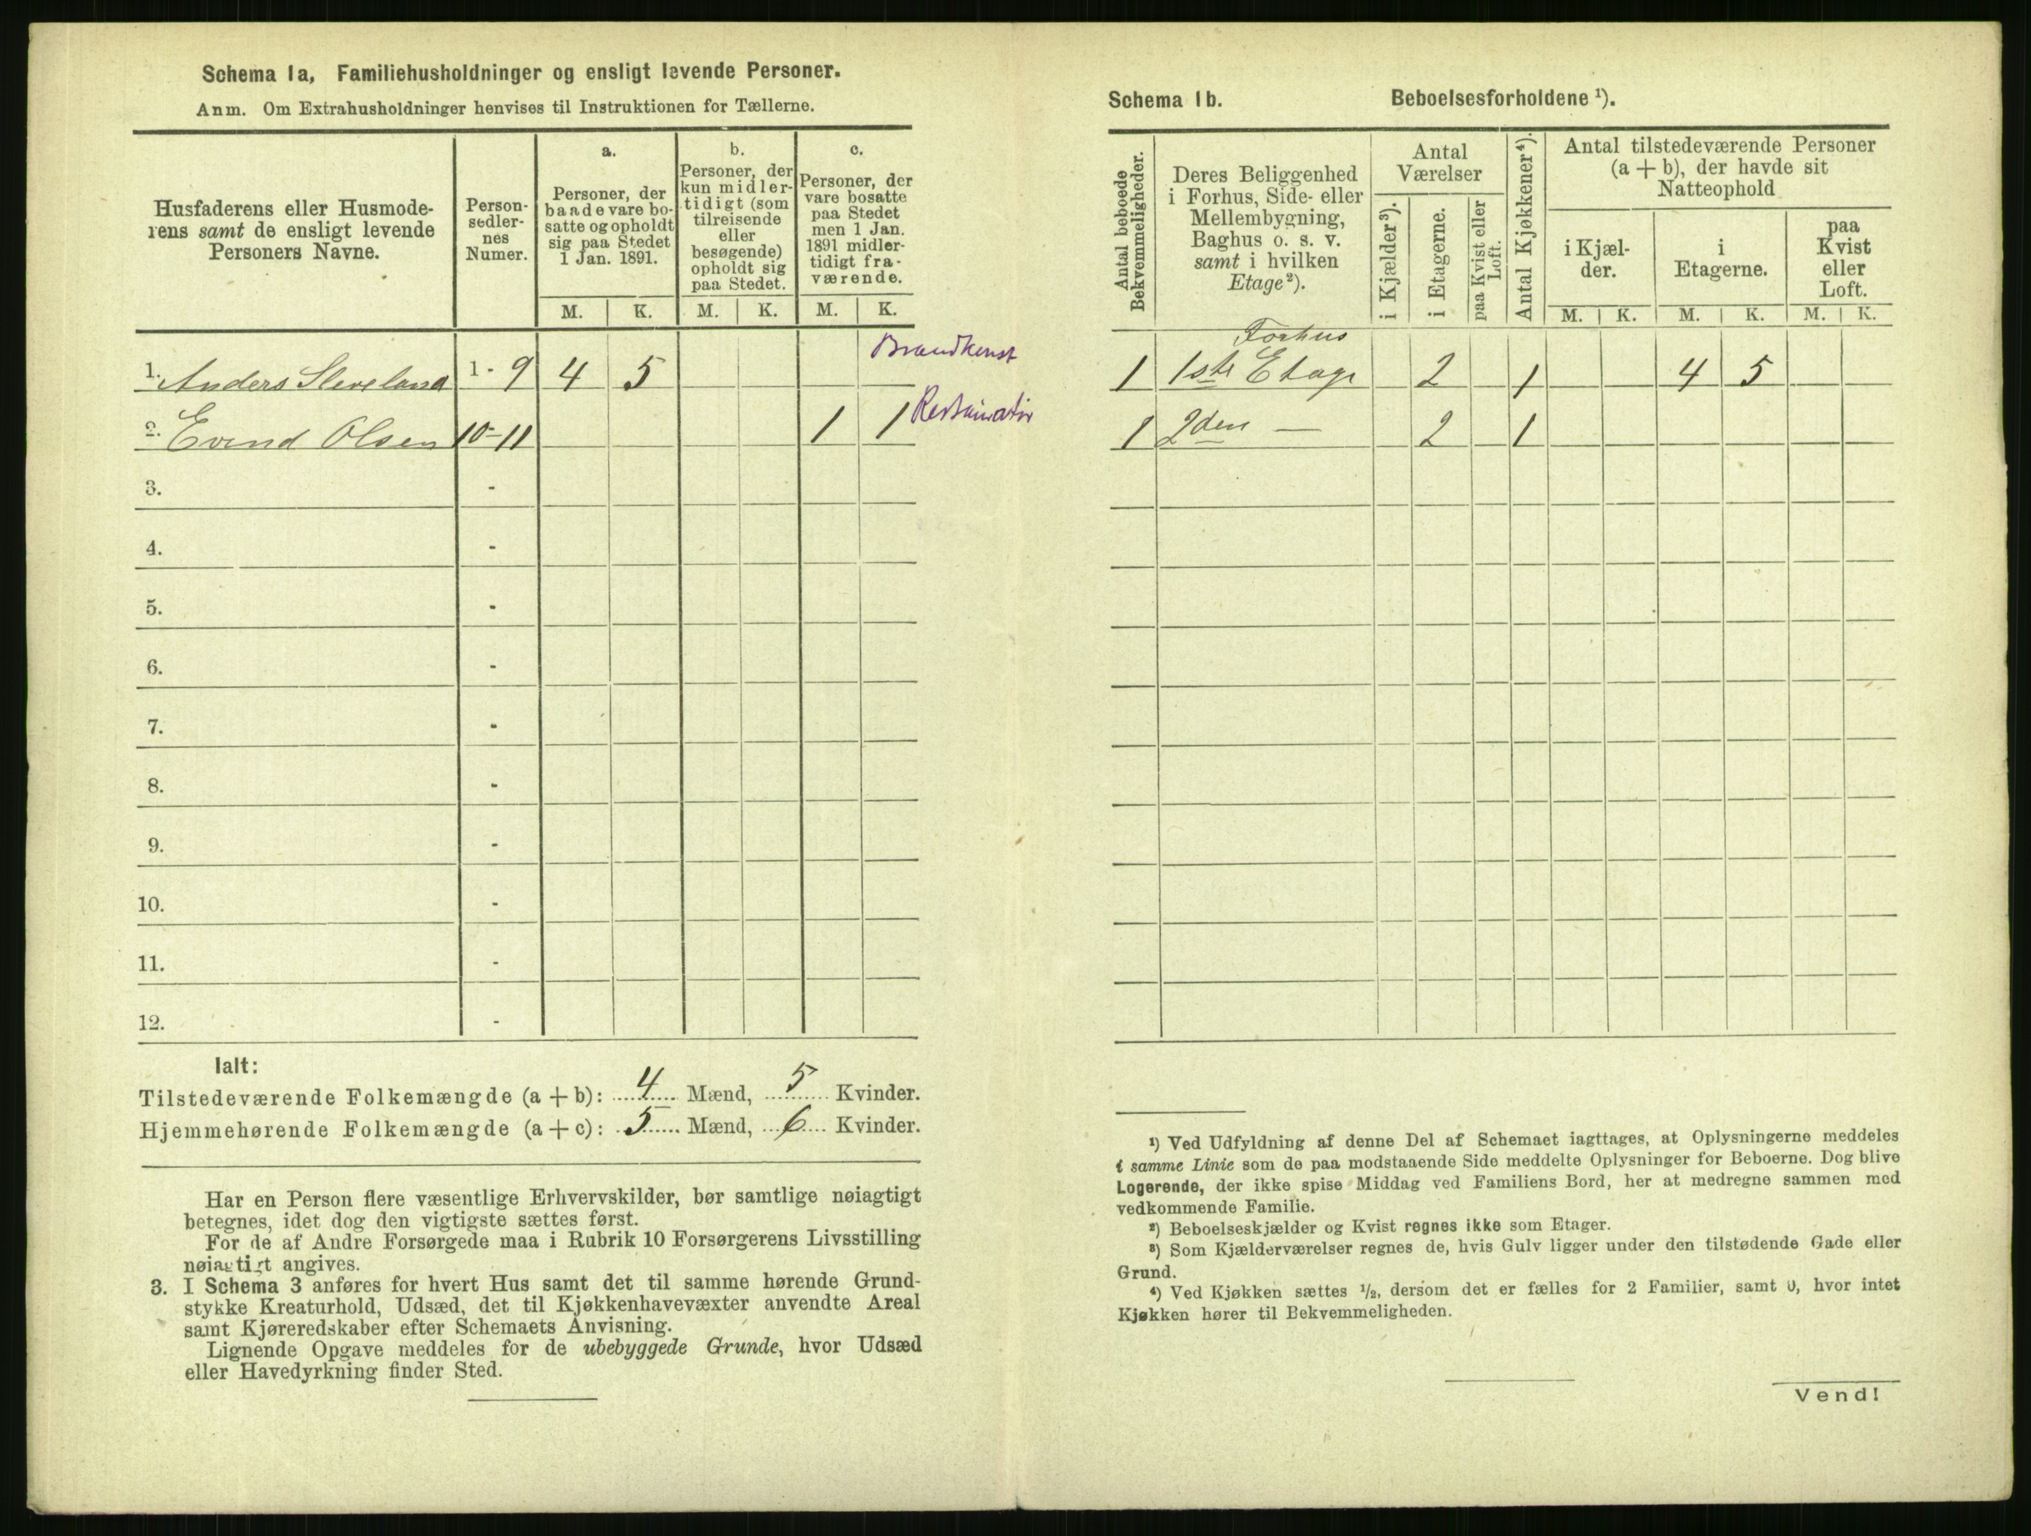 Schema 1a, Familiehusholdninger og ensligt levende Personer.
Anm. Om Extrahusholdninger henvises til Instruktionen for Tællerne.
Husfaderens eller Husmode-
rens samt de ensligt levende
Personers Navne.
Person-
sedler-
nes
Numer.
a.
Personer, der
baade vare bo-
satte og opholdt
sig paa Stedet
1 Jan. 1891.
b.
Personer, der
kun midler-
tidigt (som
tilreisende
eller
besøgende)
opholdt sig
paa Stedet.
c.
Personer, der
vare bosatte
paa Stedet
men 1 Jan.
1891 midler-
tidigt fra-
værende.
M. K. M. K. M. K.
1. Anders Sleveland 1 - 9 4 5 Brandkonst
2. Evind Olsen 10-11 1 1
3. -
4. -
5. -
6. -
7. -
8. -
9. -
10. -
11. -
12. -
Ialt:
Tilstedeværende Folkemængde (a + b): 4 Mænd, 5 Kvinder.
Hjemmehørende Folkemængde (a + c): 5 Mænd, 6 Kvinder.
Har en Person flere væsentlige Erhvervskilder, bør samtlige nøiagtigt
betegnes, idet dog den vigtigste sættes først.
For de af Andre Forsørgede maa i Rubrik 10 Forsørgerens Livsstilling
nøiagtigt angives.
3. I Schema 3 anføres for hvert Hus samt det til samme hørende Grund-
stykke Kreaturhold, Udsæd, det til Kjøkkenhavevæxter anvendte Areal
samt Kjøreredskaber efter Schemaets Anvisning.
Lignende Opgave meddeles for de ubebyggede Grunde, hvor Udsæd
eller Havedyrkning finder Sted.
Schema 1b. Beboelsesforholdene ¹).
Antal beboede
Bekvemmeligheder.
Deres Beliggenhed
i Forhus, Side- eller
Mellembygning,
Baghus o. s. v.
samt i hvilken
Etage ²).
Antal
Værelser
i Kjælder ³).
i Etagerne.
paa Kvist eller
Loft.
Antal Kjøkkener ⁴).
Antal tilstedeværende Personer
(a + b), der havde sit
Natteophold
i Kjæl-
der.
i
Etagerne.
paa
Kvist
eller
Loft.
M. K. M. K. M. K.
Forhus
1 1ste Etage 2 1 4 5
1 2den — 2 1
¹) Ved Udfyldning af denne Del af Schemaet iagttages, at Oplysningerne meddeles
i samme Linie som de paa modstaaende Side meddelte Oplysninger for Beboerne. Dog blive
Logerende, der ikke spise Middag ved Familiens Bord, her at medregne sammen med
vedkommende Familie.
²) Beboelseskjælder og Kvist regnes ikke som Etager.
³) Som Kjælderværelser regnes de, hvis Gulv ligger under den tilstødende Gade eller
Grund.
⁴) Ved Kjøkken sættes ½, dersom det er fælles for 2 Familier, samt 0, hvor intet
Kjøkken hører til Bekvemmeligheden.
Vend!